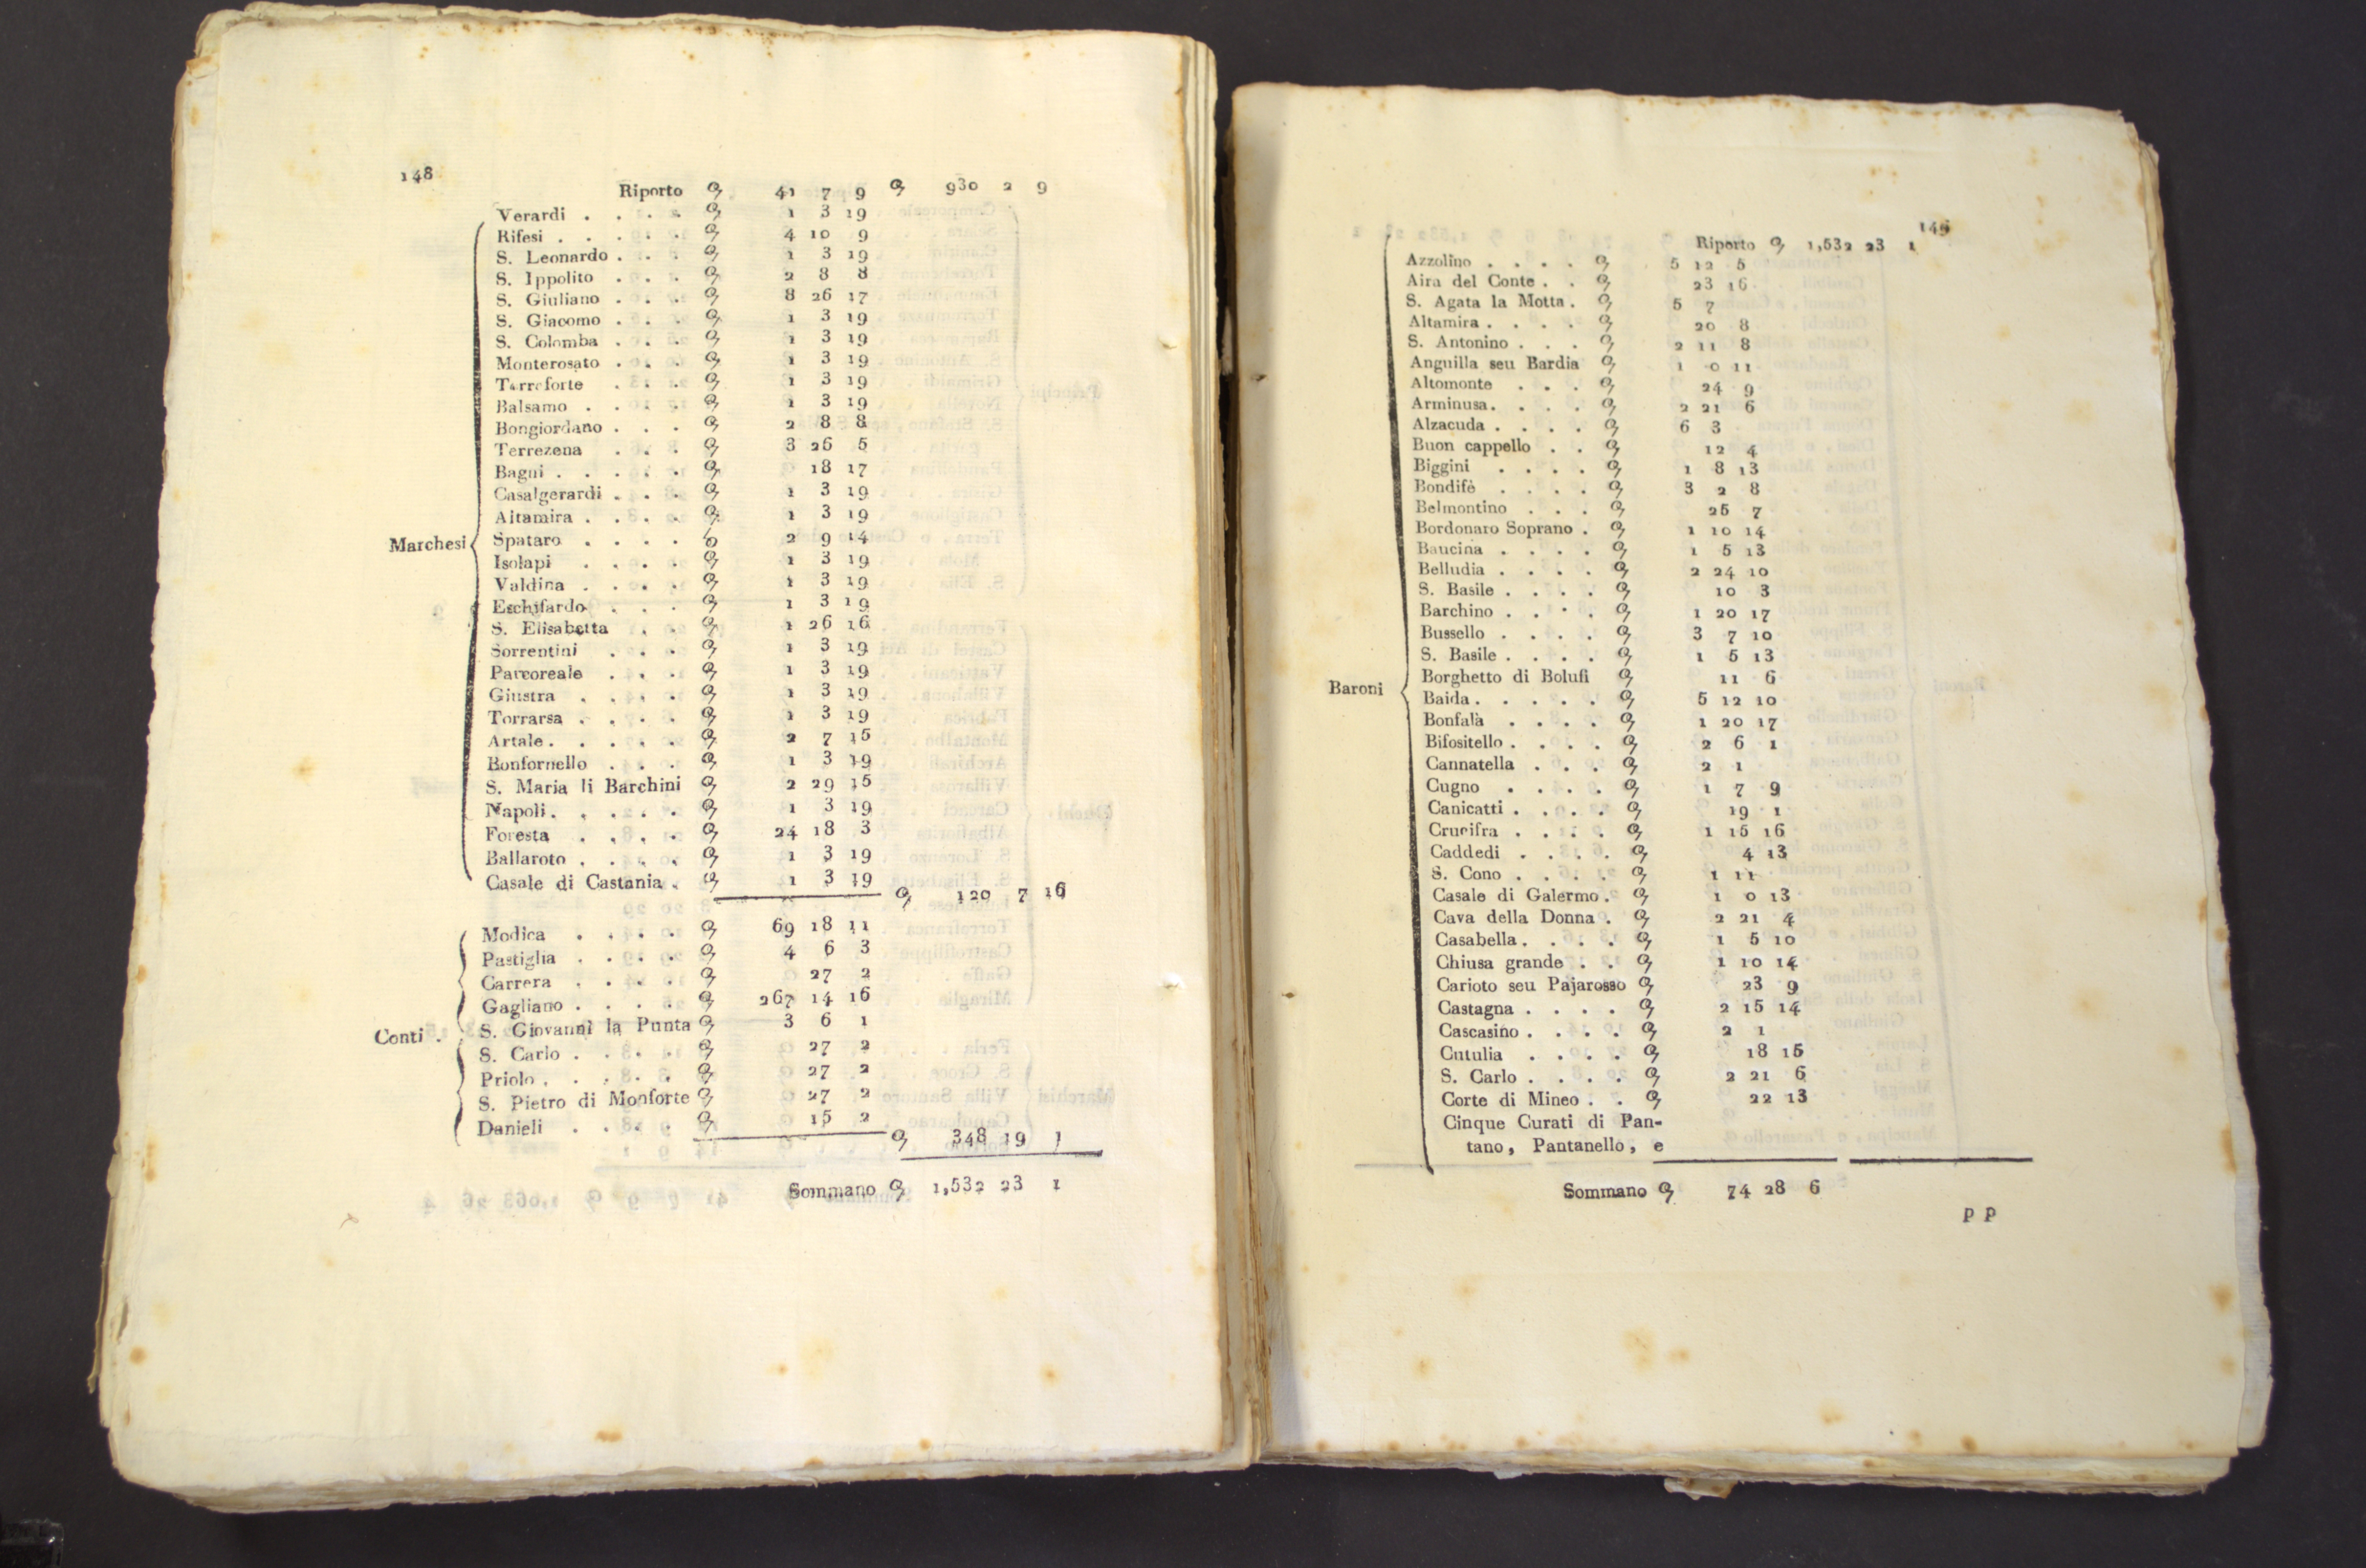 148
Riporto 41 7 9 930 2 9
Verardi . . . . 1 3 19
Rifesi . . . . . 4 10 9
S. Leonardo . . . 1 3 19
S. Ippolito . . . 2 8 8
S. Giuliano . . . 8 26 17
S. Giacomo . . . 1 3 19
S. Colomba . . . 1 3 19
Monterosato . . . 1 3 19
Terreforte . . . 1 3 19
Balsamo . . . . 1 3 19
Bongiordano . . . 2 8 8
Terrezena . . . 3 26 5
Bagni . . . . . 18 17
Casalgerardi . . . 1 3 19
Altamira . . . . 1 3 19
Marchesi
Spataro . . . . 2 9 14
Isolapi . . . . 1 3 19
Valdina . . . . 1 3 19
Eschifardo . . . 1 3 19
S. Elisabetta . . 1 26 16
Sorrentini . . . 1 3 19
Parcoreale . . . 1 3 19
Giustra . . . . 1 3 19
Torrarsa . . . . 1 3 19
Artale . . . . . 2 7 15
Bonfornello . . . 1 3 19
S. Maria li Barchini 2 29 15
Napoli . . . . . 1 3 19
Foresta . . . . 24 18 3
Ballaroto . . . . 1 3 19
Casale di Castania . 1 3 19
120 7 16
Modica . . . . 69 18 11
Pastiglia . . . . 4 6 3
Carrera . . . . 27 2
Gagliano . . . . 267 14 16
Conti . S. Giovanni la Punta 3 6 1
S. Carlo . . . . 27 2
Priolo . . . . . 27 2
S. Pietro di Monforte 27 2
Danieli . . . . 15 2
348 19 1
Sommano 1,532 23 1
149
Riporto 1,532 23 1
Azzolino . . . . 5 12 5
Aira del Conte . . 23 16
S. Agata la Motta . 5 7
Altamira . . . . 20 8
S. Antonino . . . 2 11 8
Anguilla seu Bardia 1 0 11
Altomonte . . . 24 9
Arminusa . . . . 2 21 6
Alzacuda . . . . 6 3
Buon cappello . . 12 4
Biggini . . . . 1 8 13
Bondifè . . . . 3 2 8
Belmontino . . . 25 7
Bordonaro Soprano . 1 10 14
Baucina . . . . 1 5 13
Belludia . . . . 2 24 10
S. Basile . . . . 10 3
Barchino . . . . 1 20 17
Bussello . . . . 3 7 10
S. Basile . . . . 1 5 13
Borghetto di Bolufi 11 6
Baroni
Baida . . . . . 5 12 10
Bonfalà . . . . 1 20 17
Bifositello . . . . 2 6 1
Cannatella . . . 2 1
Cugno . . . . 1 7 9
Canicatti . . . . 19 1
Crucifra . . . . 1 15 16
Caddedi . . . . 4 13
S. Cono . . . . 1 11
Casale di Galermo . 1 0 13
Cava della Donna . 2 21 4
Casabella . . . . 1 5 10
Chiusa grande . . 1 10 14
Carioto seu Pajarosso 23 9
Castagna . . . . 2 15 14
Cascasino . . . . 2 1
Cutulia . . . . 18 15
S. Carlo . . . . 2 21 6
Corte di Mineo . . 22 13
Cinque Curati di Pan-
tano, Pantanello, e
Sommano 74 28 6
p p